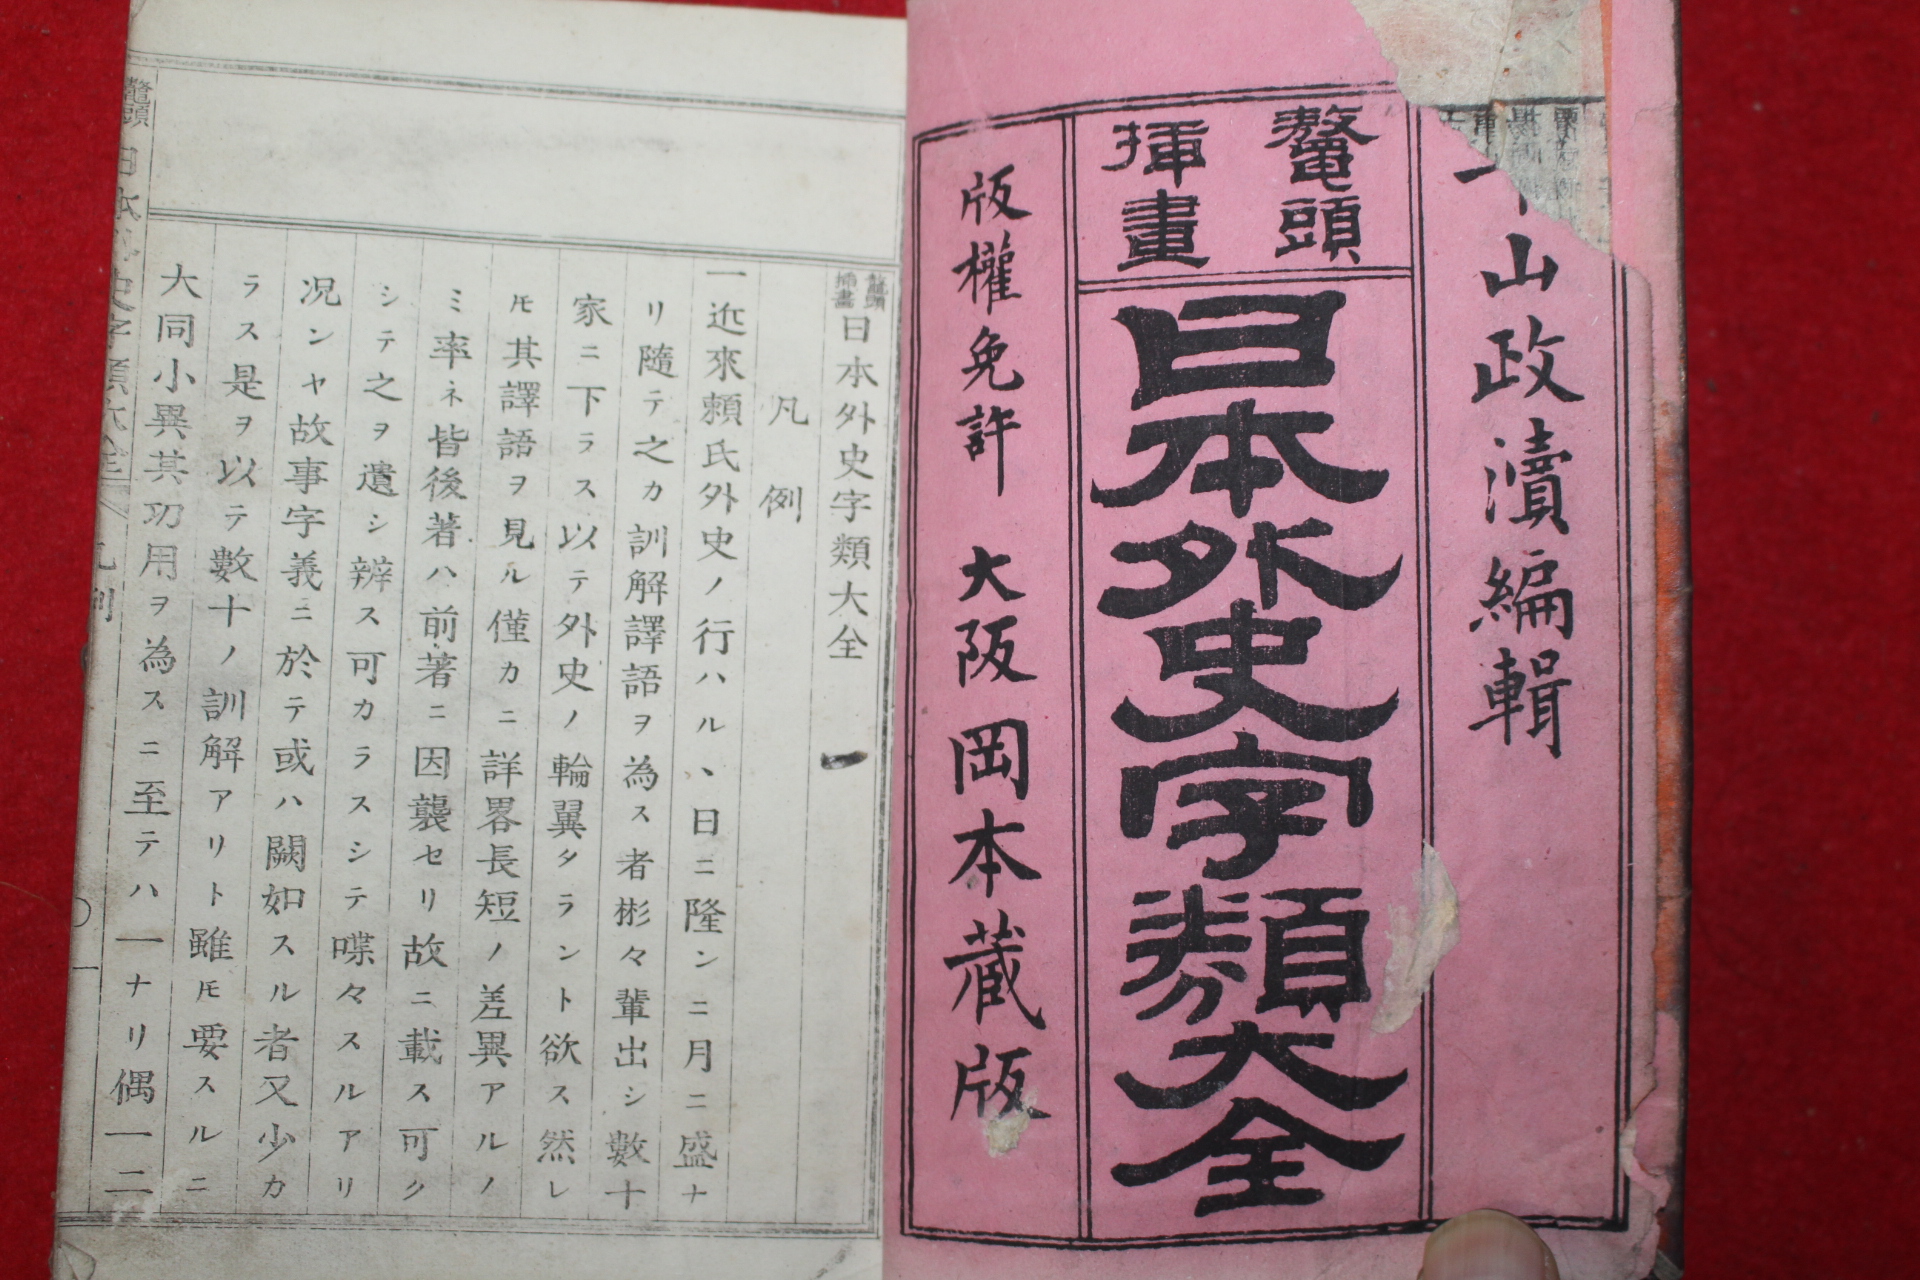 山政瀆編輯
鼇頭
挿畫
日本外史字類大全
版權免許 大阪岡本蔵版
鼇頭
挿畫
日本外史字類大全
凡例
一近來頼氏外史ノ行ハル丶日ニ隆ンニ月ニ盛ナ
リ隨テ之カ訓解譯語ヲ為ス者彬々輩出シ數十
家ニ下ラス以テ外史ノ輪翼タラント欲ス然レ
𪜈其譯語ヲ見ル僅カニ詳畧長短ノ差異アルノ
ミ率ネ皆後著ハ前著ニ因襲セリ故ニ載ス可ク
シテ之ヲ遺シ辨ス可カラスシテ喋々スルアリ
况ンヤ故事字義ニ於テ或ハ闕如スル者又少カ
ラス是ヲ以テ數十ノ訓解アリト雖𪜈要スルニ
大同小異其功用ヲ為スニ至テハ一ナリ偶一二
鼇頭